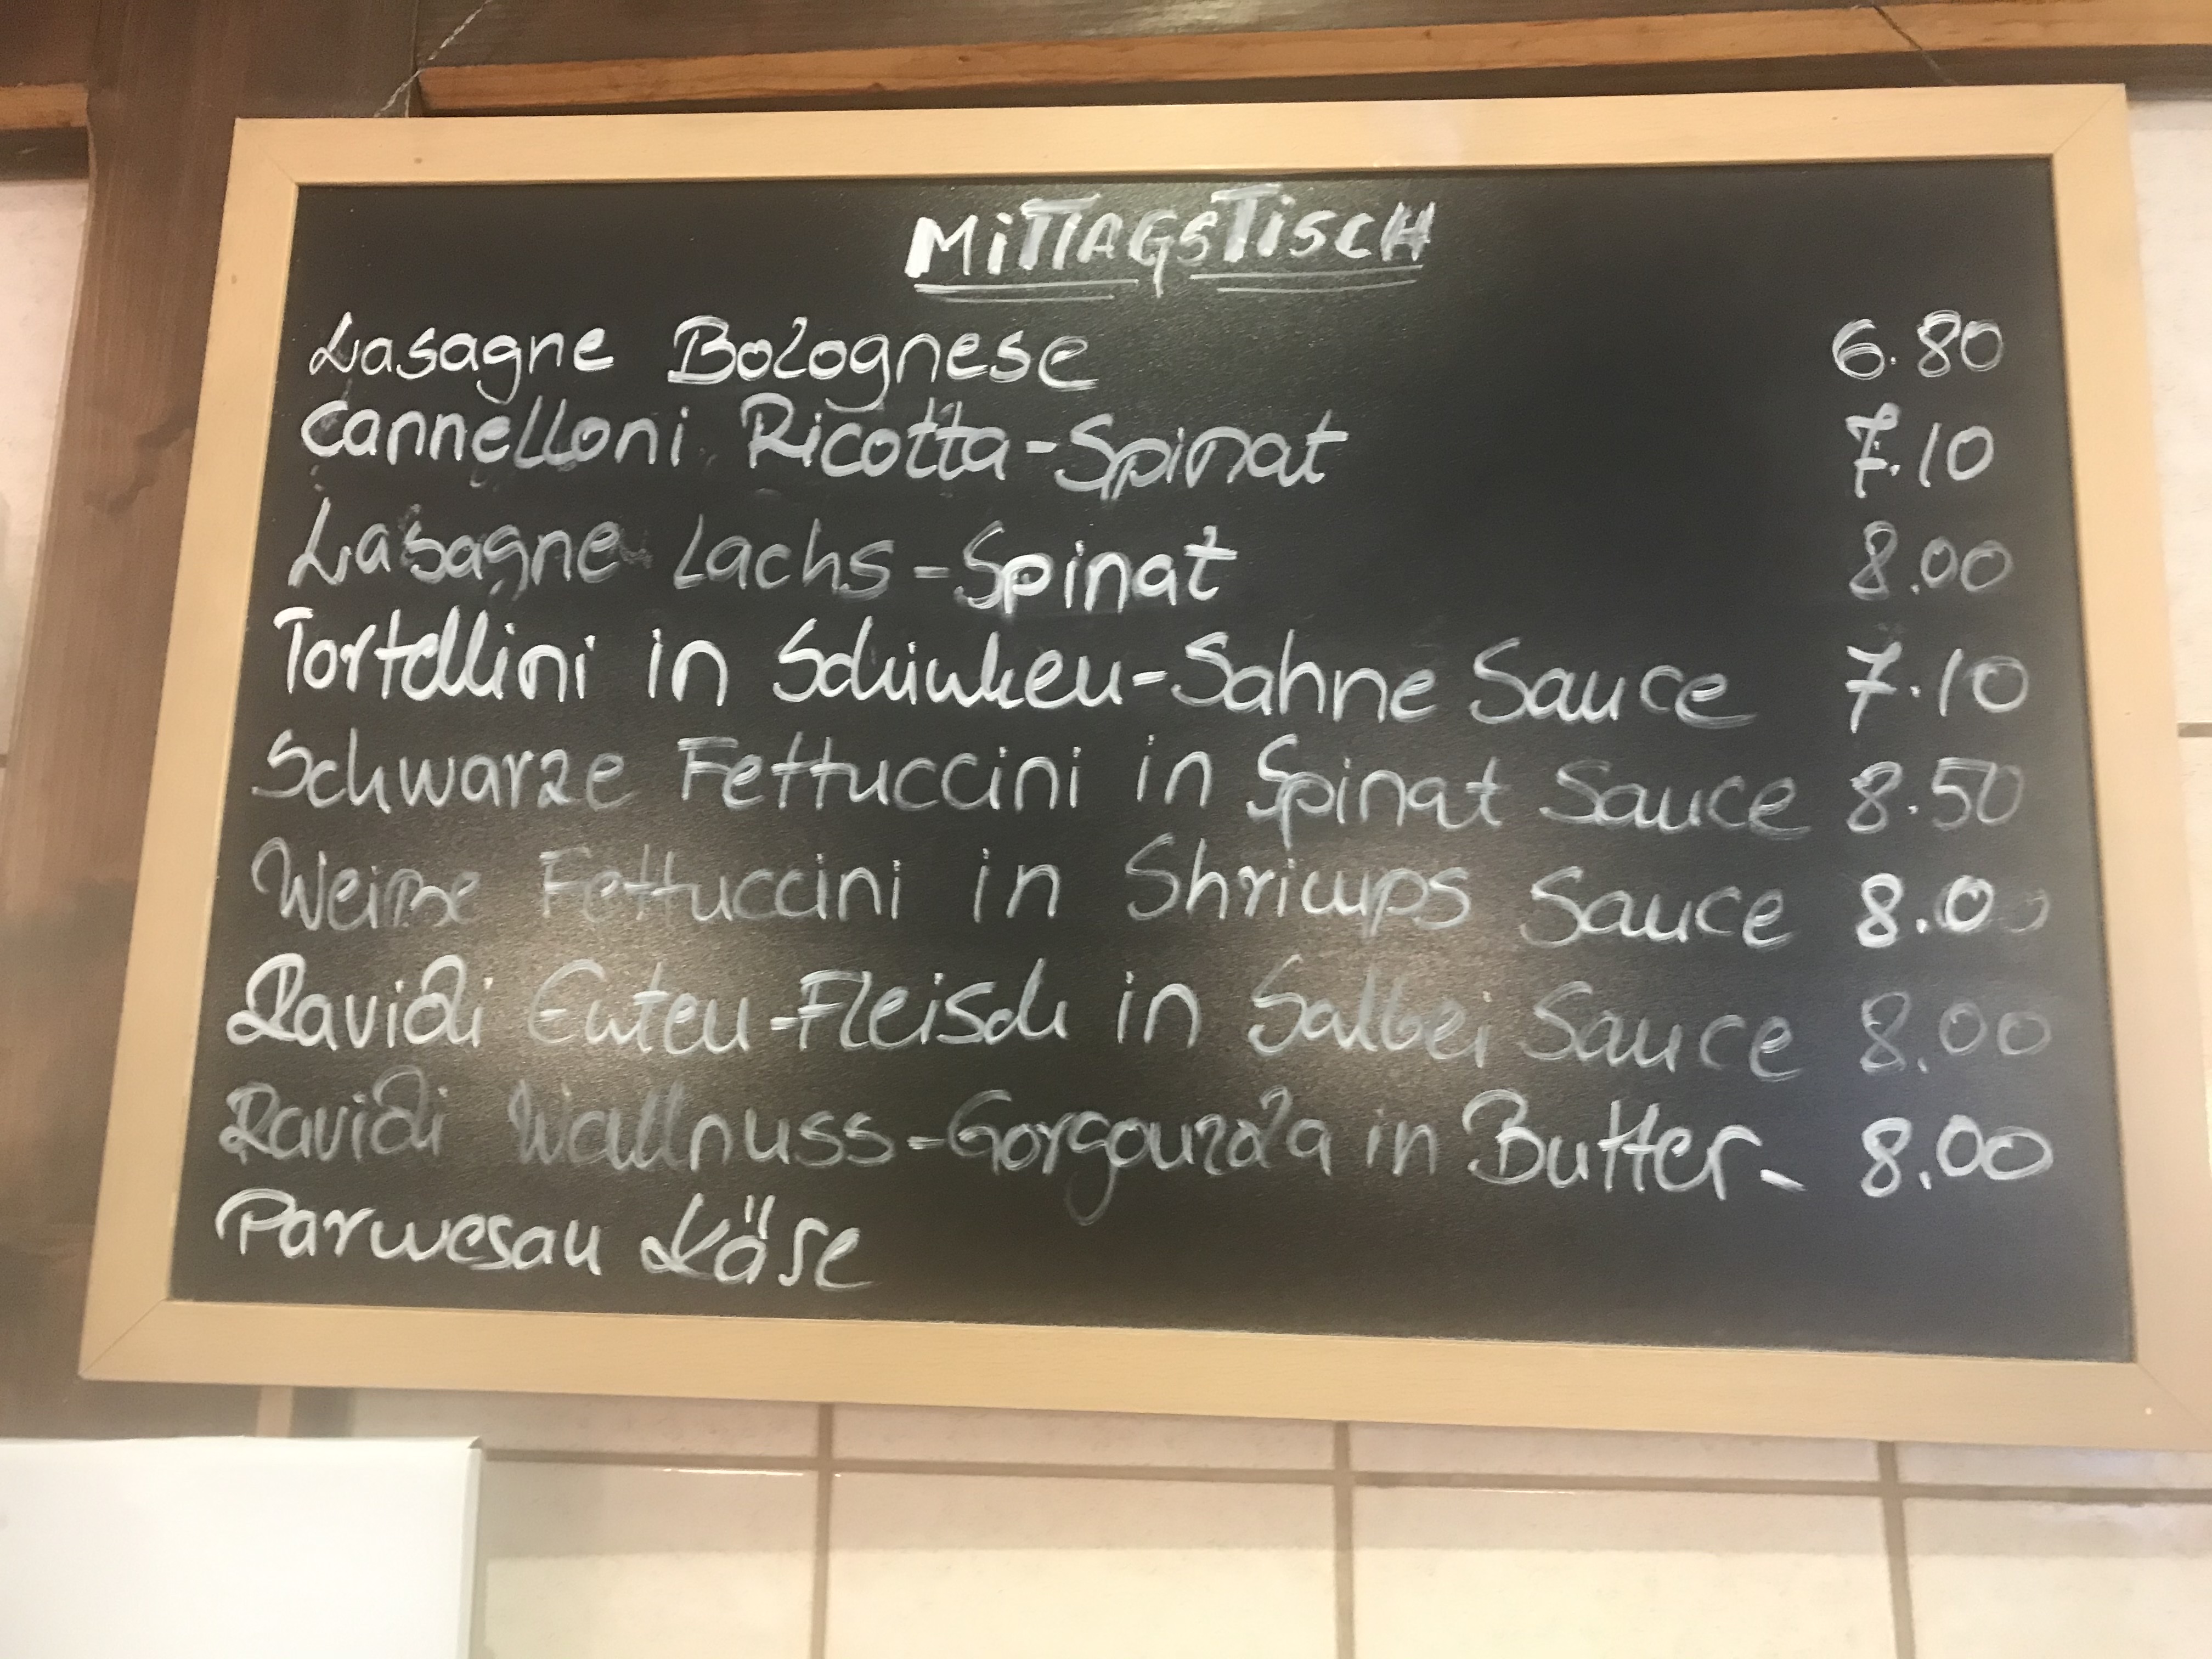 MiTTAGSTiSCH
Lasagne Bolognese 6.80
Cannelloni Ricotta-Spinat 7.10
Lasagne Lachs-Spinat 8.00
Tortellini in Schinken-Sahne Sauce 7.10
Schwarze Fettuccini in Spinat Sauce 8.50
Weiße Fettuccini in Shrimps Sauce 8.00
Ravioli Enten-Fleisch in Salbei Sauce 8.00
Ravioli Wallnuss-Gorgonzola in Butter- 8.00
Parmesan Käse